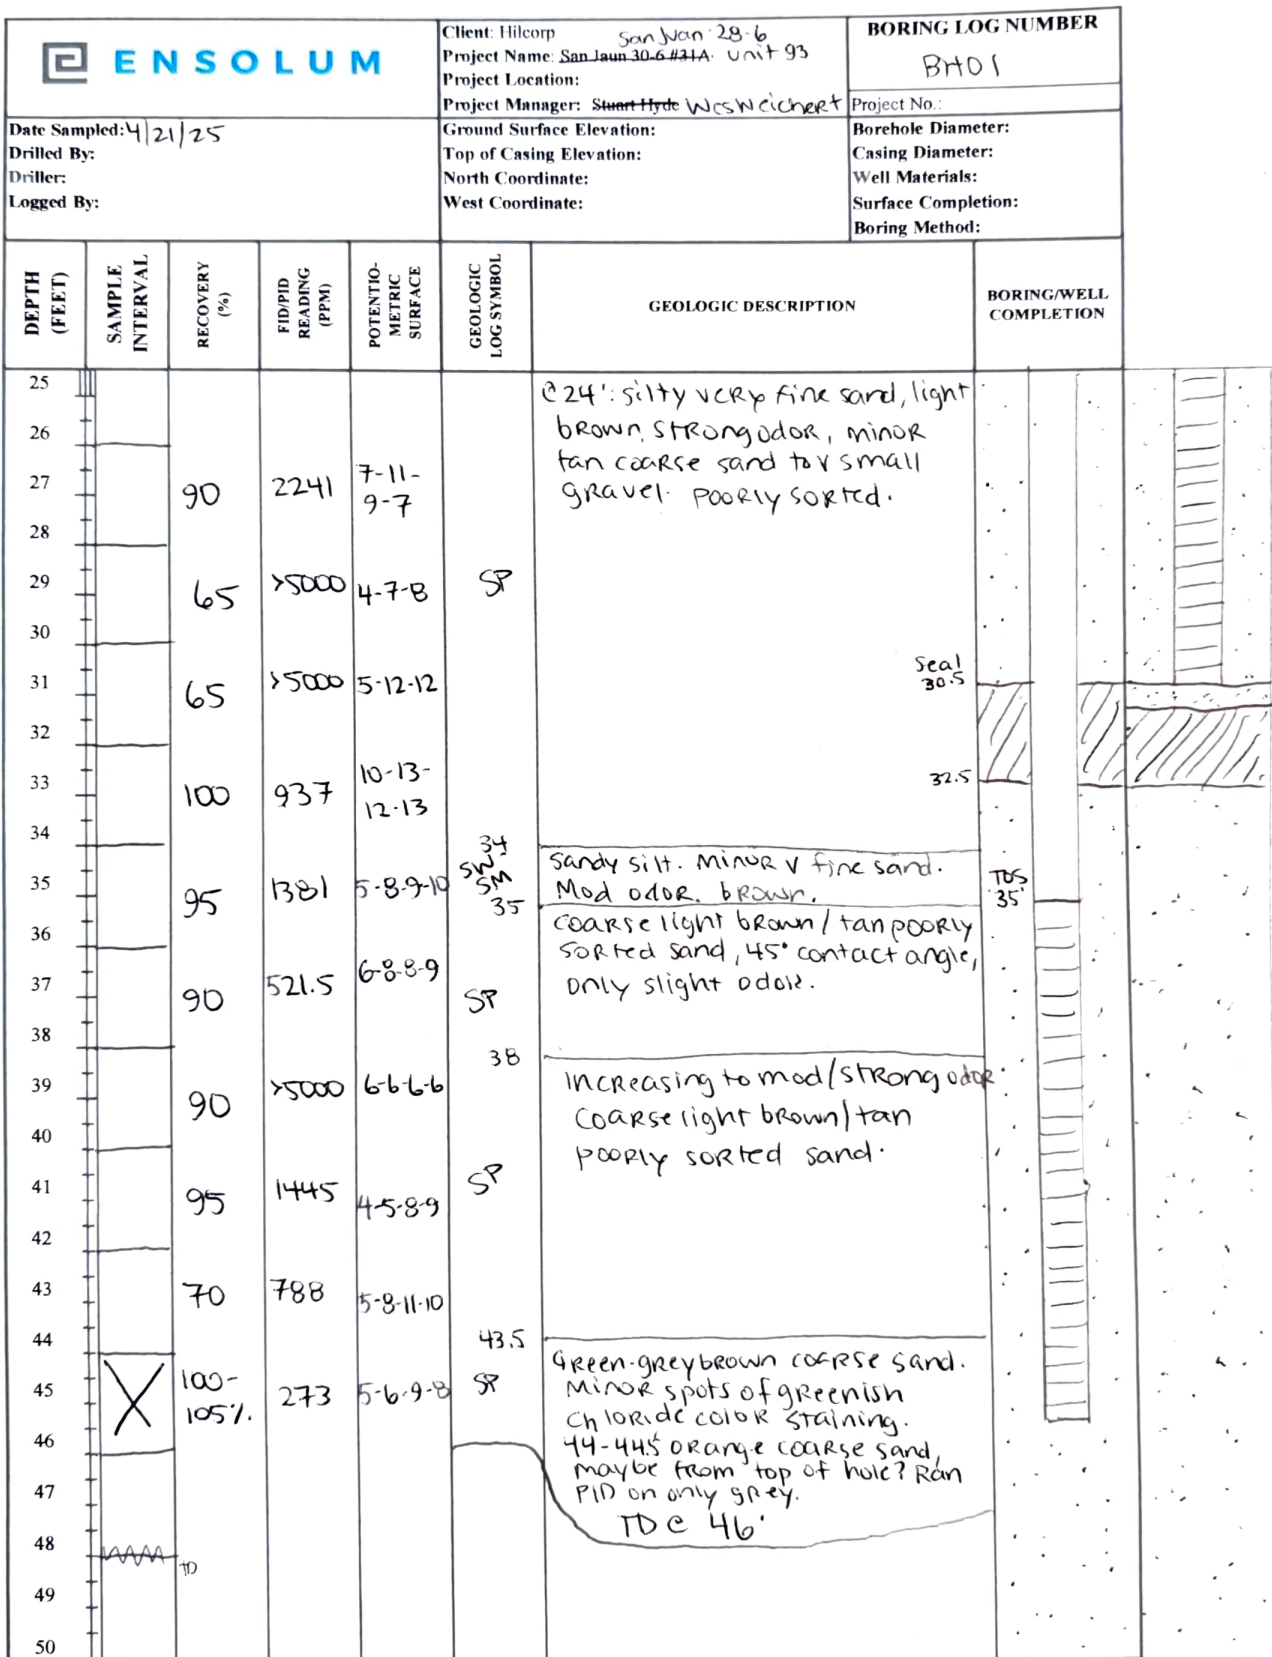 ENSOLUM
Client: Hilcorp
San Juan 28-6
Project Name: San Jaun 30-6 #31A Unit 93
Project Location:
Project Manager: Stuart Hyde Wes Weichert
BORING LOG NUMBER
BH01
Project No.:
Date Sampled: 4/21/25
Drilled By:
Driller:
Logged By:
Ground Surface Elevation:
Top of Casing Elevation:
North Coordinate:
West Coordinate:
Borehole Diameter:
Casing Diameter:
Well Materials:
Surface Completion:
Boring Method:
DEPTH
(FEET)
SAMPLE
INTERVAL
RECOVERY
(%)
FID/PID
READING
(PPM)
POTENTIO-
METRIC
SURFACE
GEOLOGIC
LOG SYMBOL
GEOLOGIC DESCRIPTION
BORING/WELL
COMPLETION
25
@ 24': silty very fine sand, light
26
brown, strong odor, minor
tan coarse sand to v small
27
90
2241
7-11-
9-7
gravel. poorly sorted.
28
29
65
>5000
4-7-8
SP
30
31
65
>5000
5-12-12
Seal
30.5
32
33
100
937
10-13-
12-13
32.5
34
34
Sandy silt. Minor v fine sand.
35
95
1381
5-8-9-10
SW-
SM
35
Mod odor. brown.
TOS
35'
36
coarse light brown/tan poorly
sorted sand, 45° contact angle,
37
90
521.5
6-8-8-9
SP
only slight odor.
38
38
39
90
>5000
6-6-6-6
Increasing to mod/strong odor
coarse light brown/tan
40
poorly sorted sand.
41
95
1445
4-5-8-9
SP
42
43
70
788
5-8-11-10
44
43.5
Green-grey brown coarse sand.
45
100-
105%
273
5-6-9-8
SP
Minor spots of greenish
Chloride color staining.
46
44-44.5 orange coarse sand,
maybe from top of hole? Ran
47
PID on only grey.
TD @ 46'
48
TD
49
50